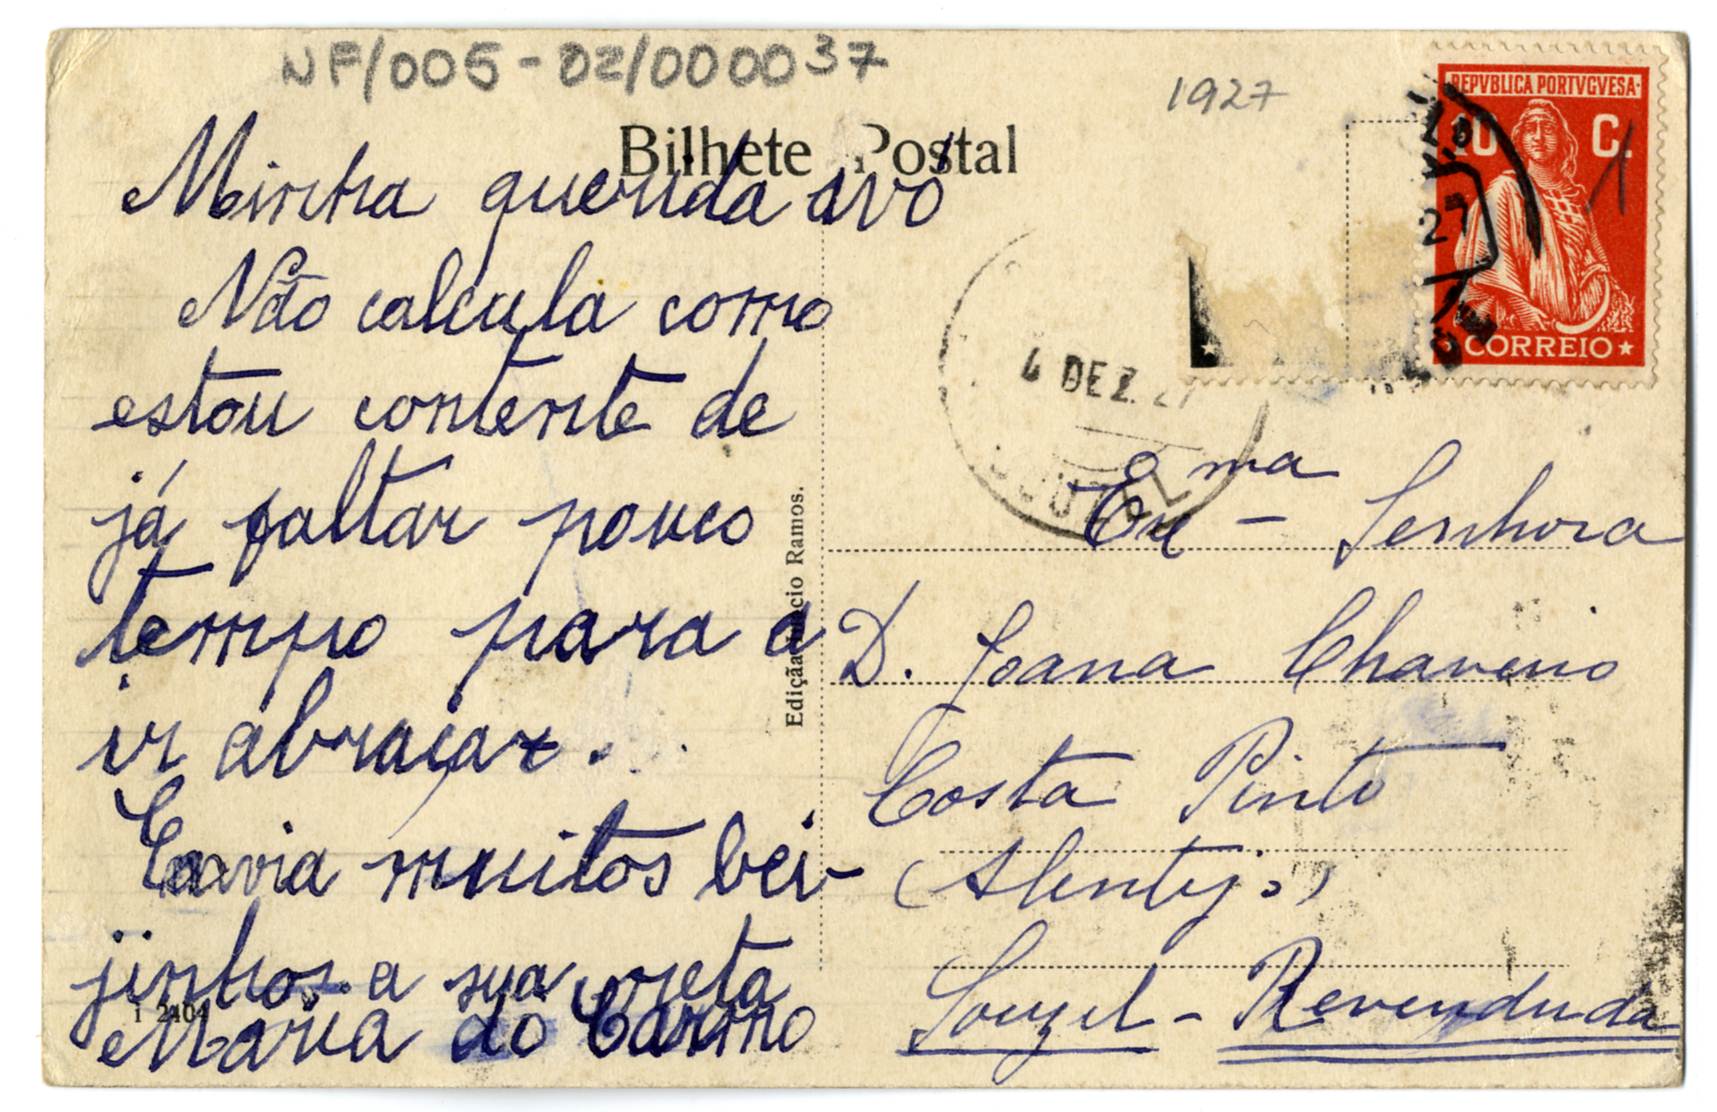 NF/005-02/000037
1927
Bilhete Postal
REPVBLICA PORTVGVESA
10 C.
1
27
CORREIO
4 DEZ. 27
Minha querida avó
Não calcula como
estou contente de
já faltar pouco
tempo para a
ir abraçar.
Envia muitos bei-
jinhos a sua neta
Maria do Carmo
1 2404
Edição Inácio Ramos.
Exma Senhora
D. Joana Chaveiro
Costa Pinto
(Alentejo)
Souzel - Revenduda